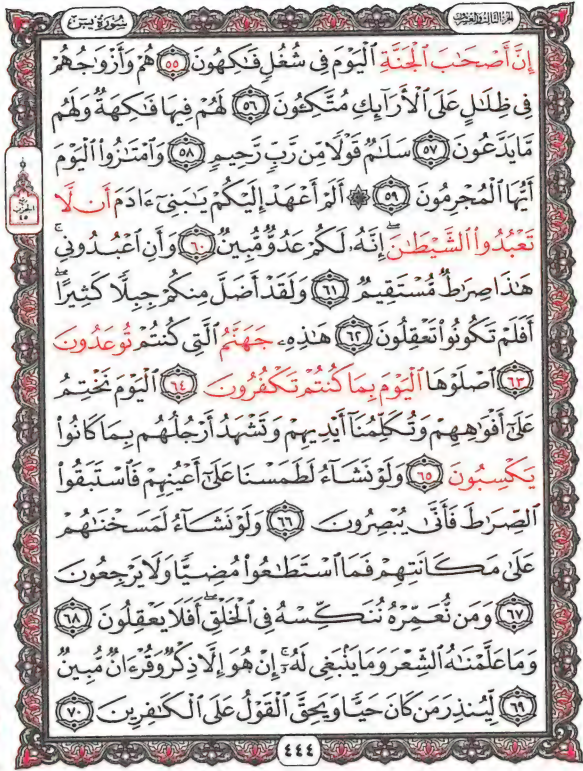 سُورَةُ يسٓ
الجزء الثالث والعشرون
إِنَّ أَصْحَٰبَ ٱلْجَنَّةِ ٱلْيَوْمَ فِى شُغُلٍ فَٰكِهُونَ ۝٥٥ هُمْ وَأَزْوَٰجُهُمْ
فِى ظِلَٰلٍ عَلَى ٱلْأَرَآئِكِ مُتَّكِـُٔونَ ۝٥٦ لَهُمْ فِيهَا فَٰكِهَةٌ وَلَهُم
مَّا يَدَّعُونَ ۝٥٧ سَلَٰمٌ قَوْلًا مِّن رَّبٍّ رَّحِيمٍ ۝٥٨ وَٱمْتَٰزُوا۟ ٱلْيَوْمَ
أَيُّهَا ٱلْمُجْرِمُونَ ۝٥٩ ۞ أَلَمْ أَعْهَدْ إِلَيْكُمْ يَٰبَنِىٓ ءَادَمَ أَن لَّا
تَعْبُدُوا۟ ٱلشَّيْطَٰنَ ۖ إِنَّهُۥ لَكُمْ عَدُوٌّ مُّبِينٌ ۝٦٠ وَأَنِ ٱعْبُدُونِى ۚ
هَٰذَا صِرَٰطٌ مُّسْتَقِيمٌ ۝٦١ وَلَقَدْ أَضَلَّ مِنكُمْ جِبِلًّا كَثِيرًا ۖ
أَفَلَمْ تَكُونُوا۟ تَعْقِلُونَ ۝٦٢ هَٰذِهِۦ جَهَنَّمُ ٱلَّتِى كُنتُمْ تُوعَدُونَ
۝٦٣ ٱصْلَوْهَا ٱلْيَوْمَ بِمَا كُنتُمْ تَكْفُرُونَ ۝٦٤ ٱلْيَوْمَ نَخْتِمُ
عَلَىٰٓ أَفْوَٰهِهِمْ وَتُكَلِّمُنَآ أَيْدِيهِمْ وَتَشْهَدُ أَرْجُلُهُم بِمَا كَانُوا۟
يَكْسِبُونَ ۝٦٥ وَلَوْ نَشَآءُ لَطَمَسْنَا عَلَىٰٓ أَعْيُنِهِمْ فَٱسْتَبَقُوا۟
ٱلصِّرَٰطَ فَأَنَّىٰ يُبْصِرُونَ ۝٦٦ وَلَوْ نَشَآءُ لَمَسَخْنَٰهُمْ
عَلَىٰ مَكَانَتِهِمْ فَمَا ٱسْتَطَٰعُوا۟ مُضِيًّا وَلَا يَرْجِعُونَ
۝٦٧ وَمَن نُّعَمِّرْهُ نُنَكِّسْهُ فِى ٱلْخَلْقِ ۖ أَفَلَا يَعْقِلُونَ ۝٦٨
وَمَا عَلَّمْنَٰهُ ٱلشِّعْرَ وَمَا يَنۢبَغِى لَهُۥٓ ۚ إِنْ هُوَ إِلَّا ذِكْرٌ وَقُرْءَانٌ مُّبِينٌ
۝٦٩ لِّيُنذِرَ مَن كَانَ حَيًّا وَيَحِقَّ ٱلْقَوْلُ عَلَى ٱلْكَٰفِرِينَ ۝٧٠
الحزب
٤٥
٤٤٤